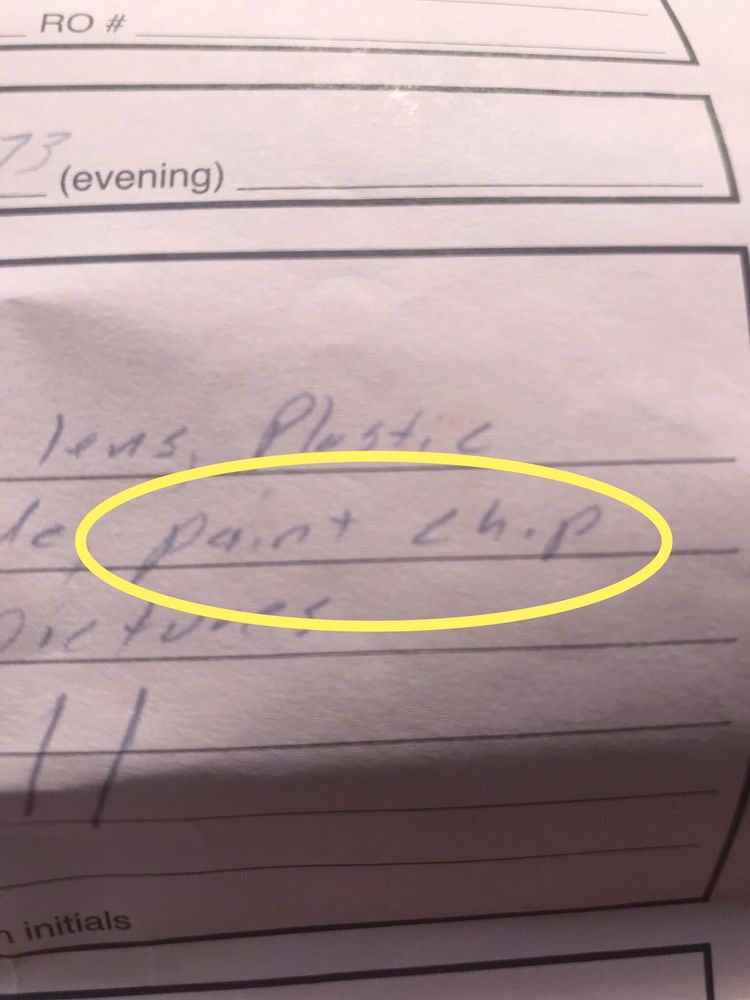 RO #
73 (evening)
lens, Plastic
paint chip
Pictures
initials